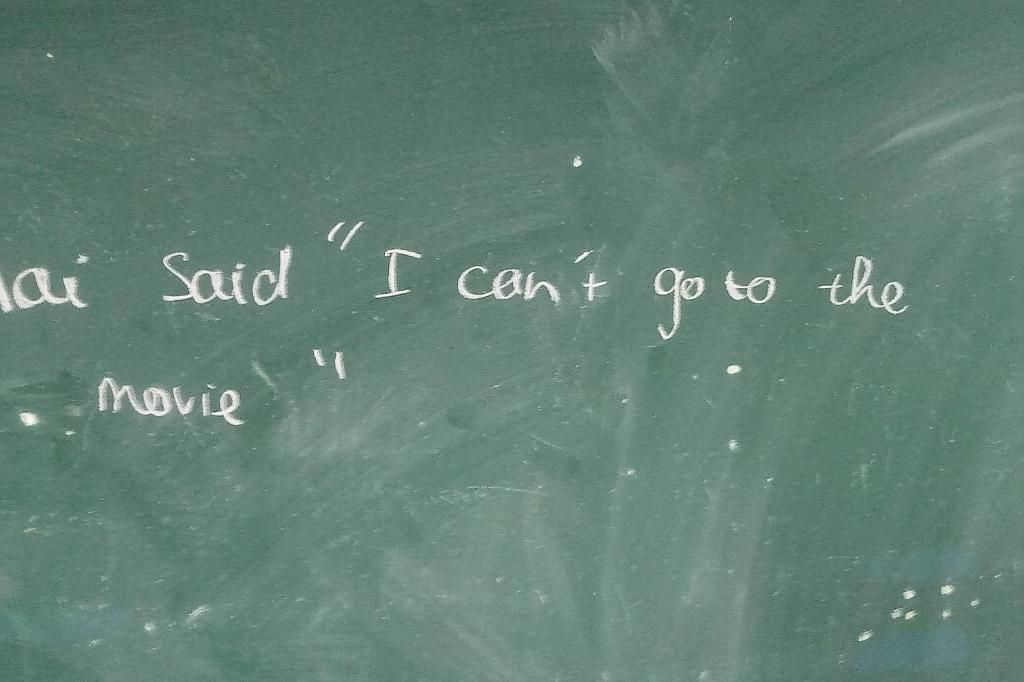 ai Said "I can't go to the
movie"